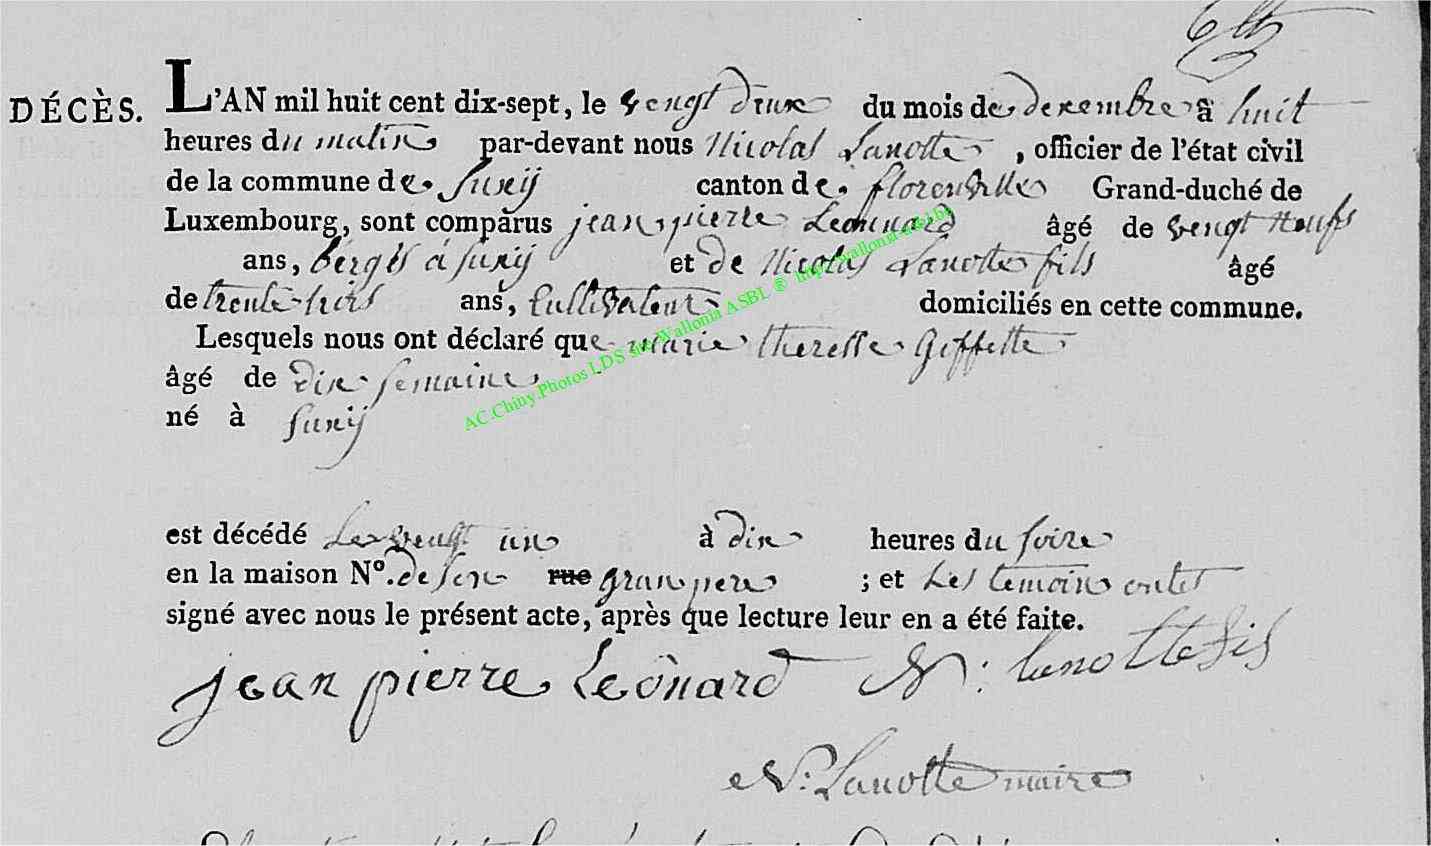 DÉCÈS. L'AN mil huit cent dix-sept, le vengt deux du mois de decembre à huit
heures du matin par-devant nous Nicolas Lanotte, officier de l'état civil
de la commune de Suxij canton de florenville Grand-duché de
Luxembourg, sont comparus jean pierre Leonnard âgé de vengt neufs
ans, bergés á suxij et de Nicolas Lanotte fils âgé
de trente-trois ans, Cultivateur domiciliés en cette commune.
Lesquels nous ont déclaré que marie theresse Goffette
âgé de dix semaine
né à suxij
est décédé Le vengt un à dix heures du soire
en la maison N°. de son rue gran pere ; et Les temoin ontes
signé avec nous le présent acte, après que lecture leur en a été faite.
jean pierre Leonard N: lanotte fis
N: Lanotte maire
AC.Chiny.Photos LDS Wallonia ASBL ®